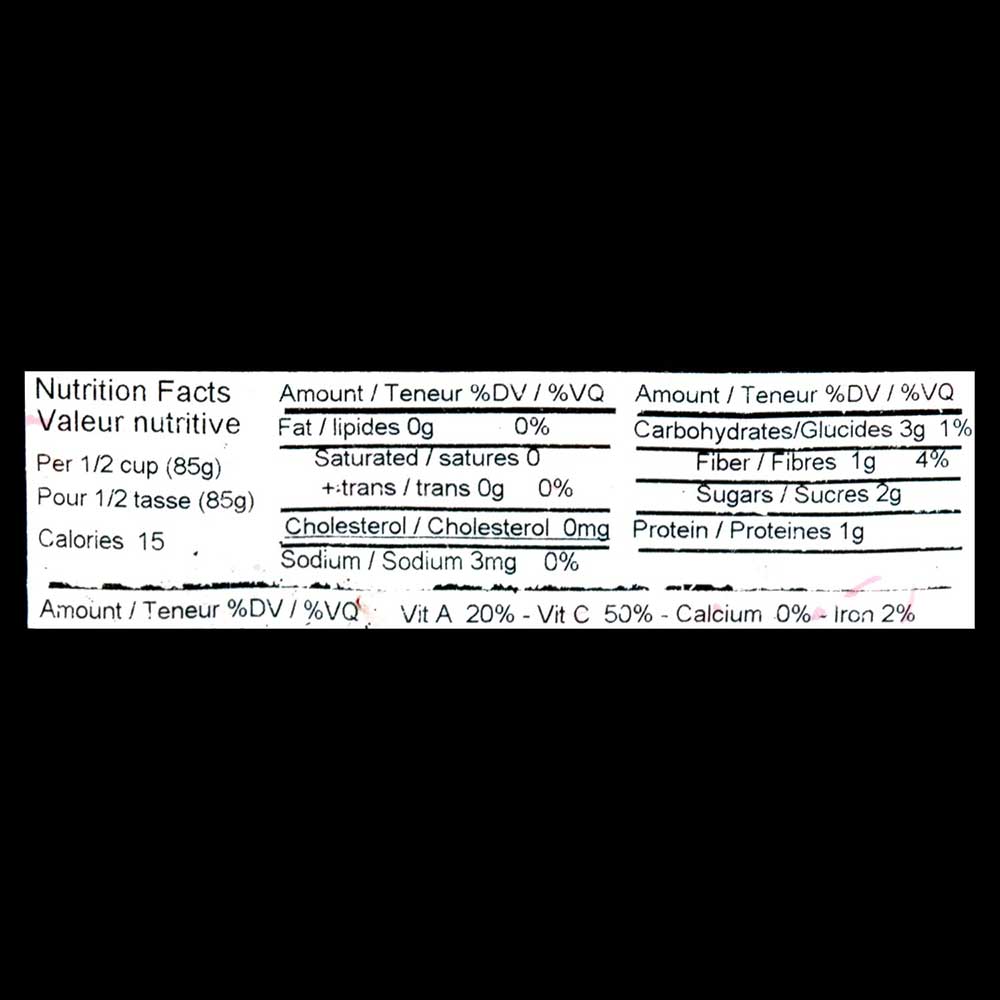 Nutrition Facts
Valeur nutritive
Per 1/2 cup (85g)
Pour 1/2 tasse (85g)
Calories 15
Amount / Teneur %DV / %VQ
Fat / lipides 0g 0%
Saturated / satures 0
+trans / trans 0g 0%
Cholesterol / Cholesterol 0mg
Sodium / Sodium 3mg 0%
Amount / Teneur %DV / %VQ
Carbohydrates/Glucides 3g 1%
Fiber / Fibres 1g 4%
Sugars / Sucres 2g
Protein / Proteines 1g
Amount / Teneur %DV / %VQ Vit A 20% - Vit C 50% - Calcium 0% - Iron 2%